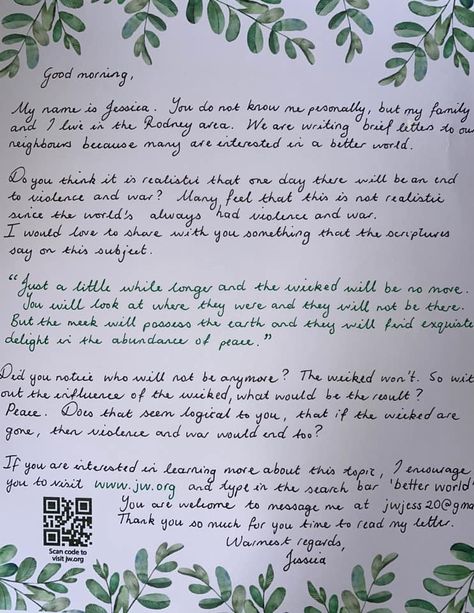 Good morning,
My name is Jessica. You do not know me pesonally, but my family
and I live in the Rodney area. We are writing brief letters to our
neighbours because many are interested in a better world.
Do you think it is realistic that one day there will be an end
to violence and war? Many feel that this is not realistic
since the world's always had violence and war.
I would love to share with you something that the scriptures
say on this subject.
"Just a little while longer and the wicked will be no more.
You will look at where they were and they will not be there.
But the meek will possess the earth and they will find exquisite
delight in the abundance of peace."
Did you notice who will not be anymore? The wicked won't. So with
out the influence of the wicked, what would be the result?
Peace. Does that seem logical to you, that if the wicked are
gone, then violence and war would end too?
If you are interested in learning more about this topic, I encourage
you to visit www.jw.org and type in the search bar 'better world'
You are welcome to message me at jwjess20@gma
Thank you so much for you time to read my letter.
Warmest regards,
Jessica
Scan code to
visit jw.org